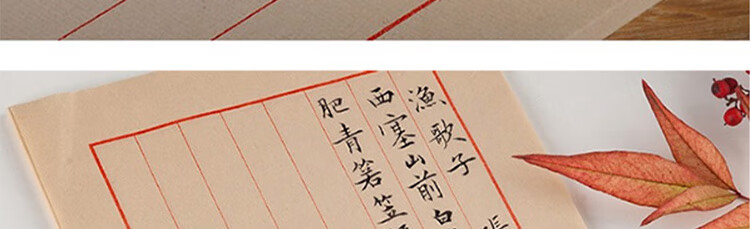 漁歌子 張
西塞山前白
肥青箬笠